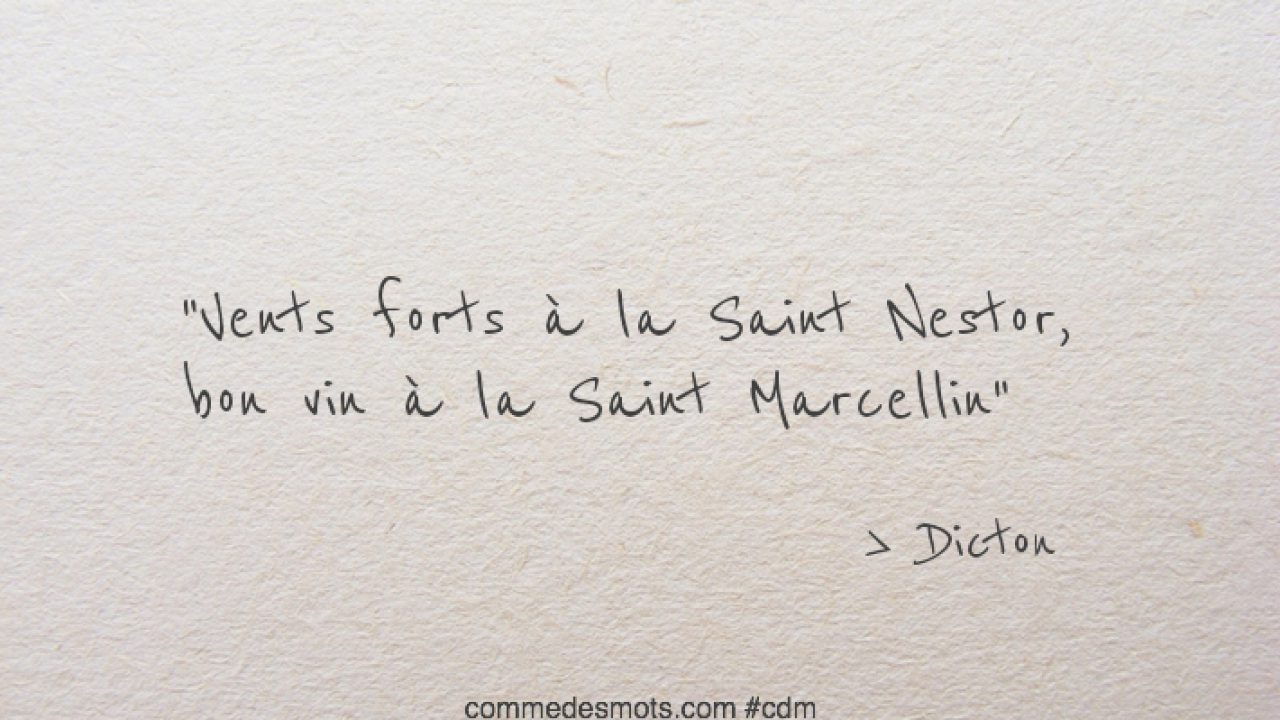 "Vents forts à la Saint Nestor,
bon vin à la Saint Marcellin"
> Dicton
commedesmots.com #cdm